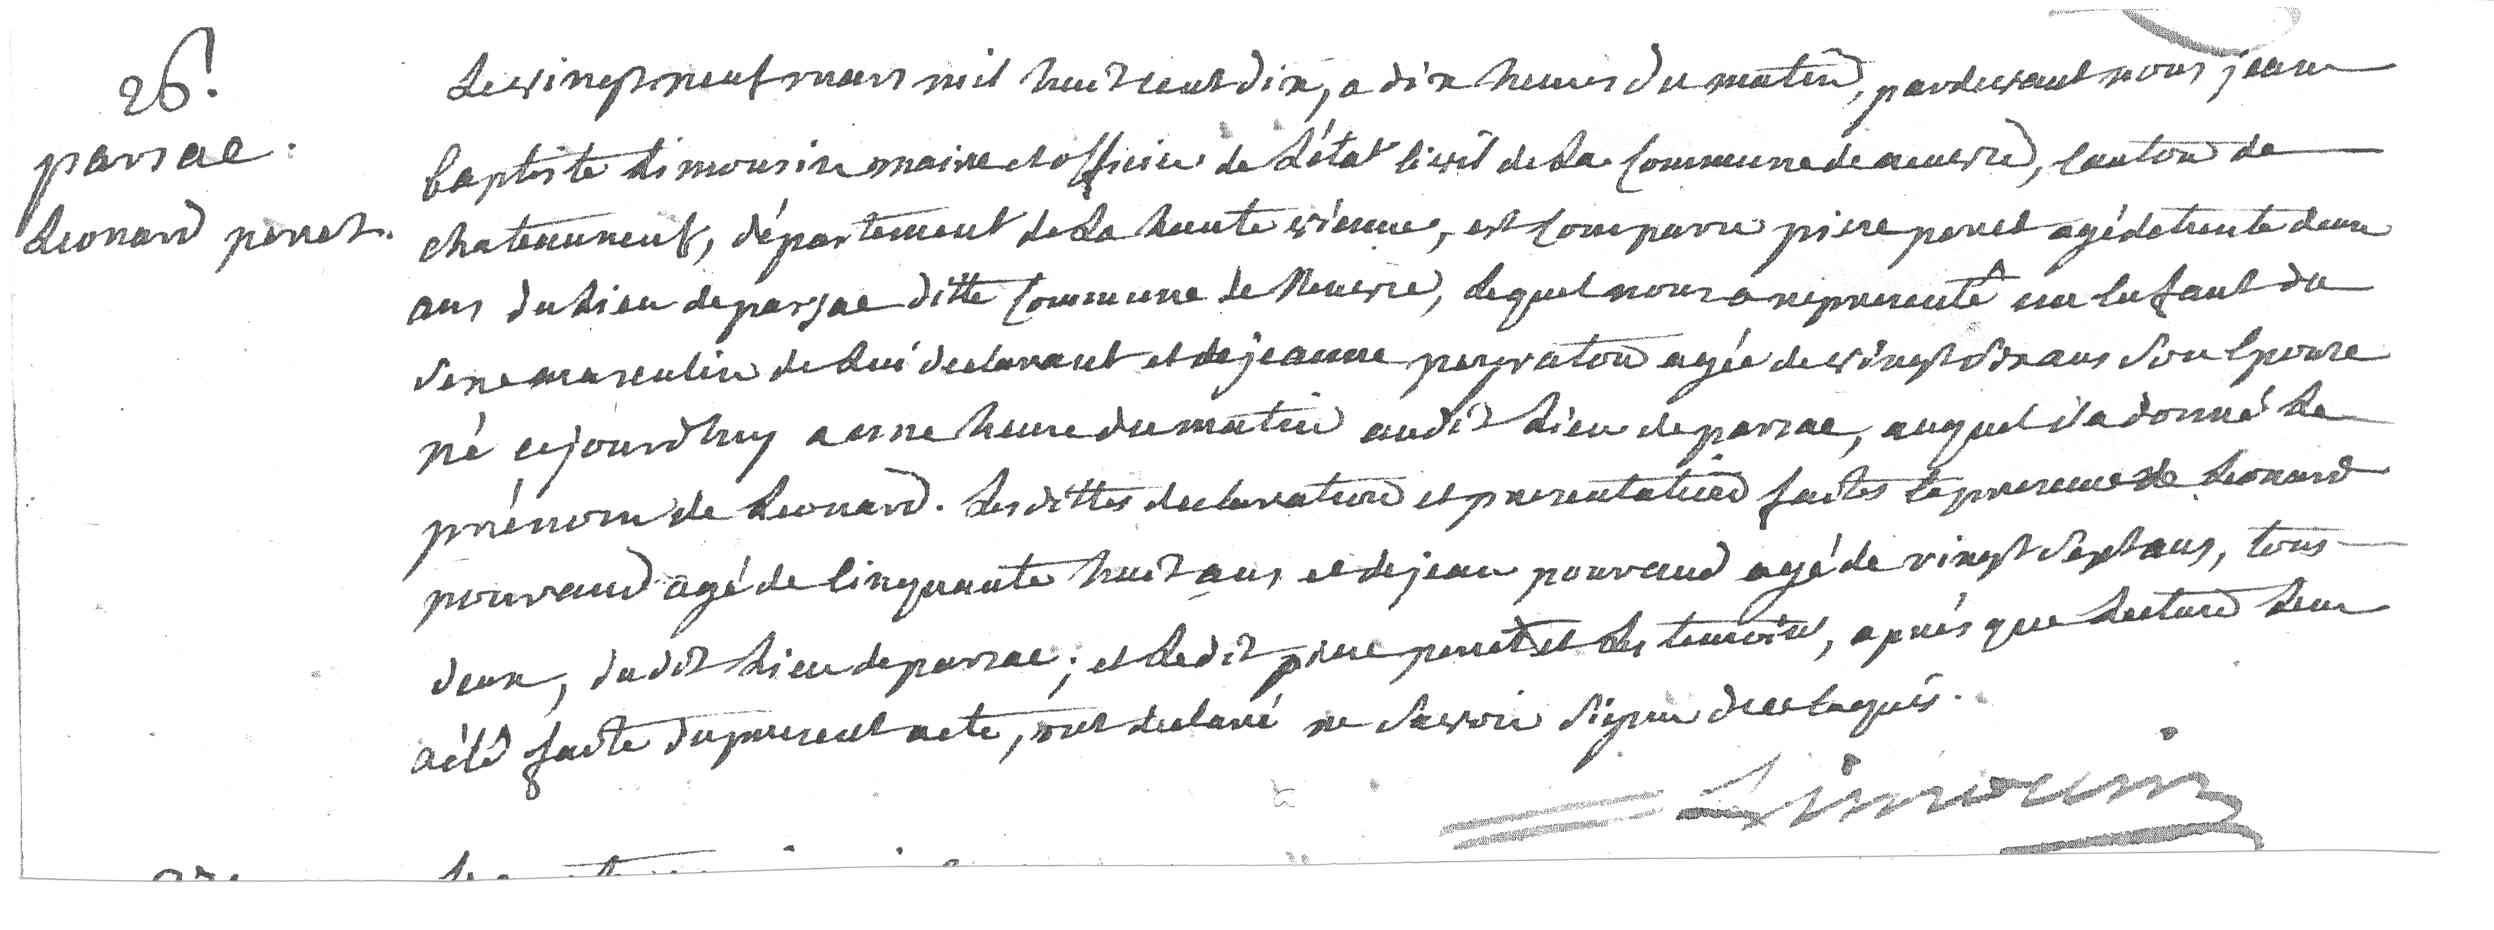 26.
parsac.
Leonard perret.
Le vingt neuf mars mil huit cent dix, a dix heures du matin, pardevant nous jean
baptiste Limousin maire et officier de L'état civil de La Commune de neuvic, canton de
chateauneuf, département de La haute vienne, est comparu piere perret agé de trente deux
ans du Lieu de parsac ditte Commune de Neuvic, Lequel nous a representé un enfant du
sexe masculin de Lui declarant et de jeanne peyraton agée de vingt six ans son epouse
né cejourdhuy a une heure du matin audit Lieu de parsac, auquel il a donné Le
prénom de Leonard. Les dittes declaration et presentation faites en presence de Leonard
pouraud agé de cinquante huit ans et de jean pouraud agé de vingt sept ans, tous
deux, dudit Lieu de parsac; et Ledit piere perret et Les temoins, après que Lecture Leur
a été faite du present acte, ont declaré ne savoir signer de ce enquis.
Limousin